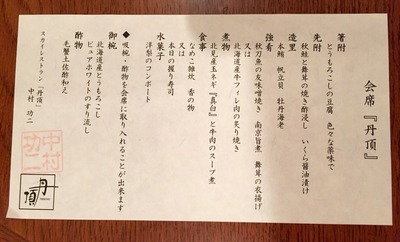 会席『丹頂』
箸附
とうもろこしの豆腐 色々な薬味で
先附
秋鮭と舞茸の焼き酢浸し いくら醤油漬け
造里
本鮪 帆立貝 牡丹海老
強肴
秋刀魚の友味噌焼き 南京旨煮 舞茸の衣揚げ
北海道産牛フィレ肉の炙り焼き
煮物
北見産玉ネギ『真白』と牛肉のスープ煮
食事
なめこ雑炊 香の物
又は
本日の握り寿司
水菓子
洋梨のコンポート
◆吸椀・酢物を会席に取り入れることが出来ます
御椀
北海道産とうもろこし
ピュアホワイトのすり流し
酢物
毛蟹土佐酢和え
スカイレストラン「丹頂」
中村 功二
中村
功二
丹
頂